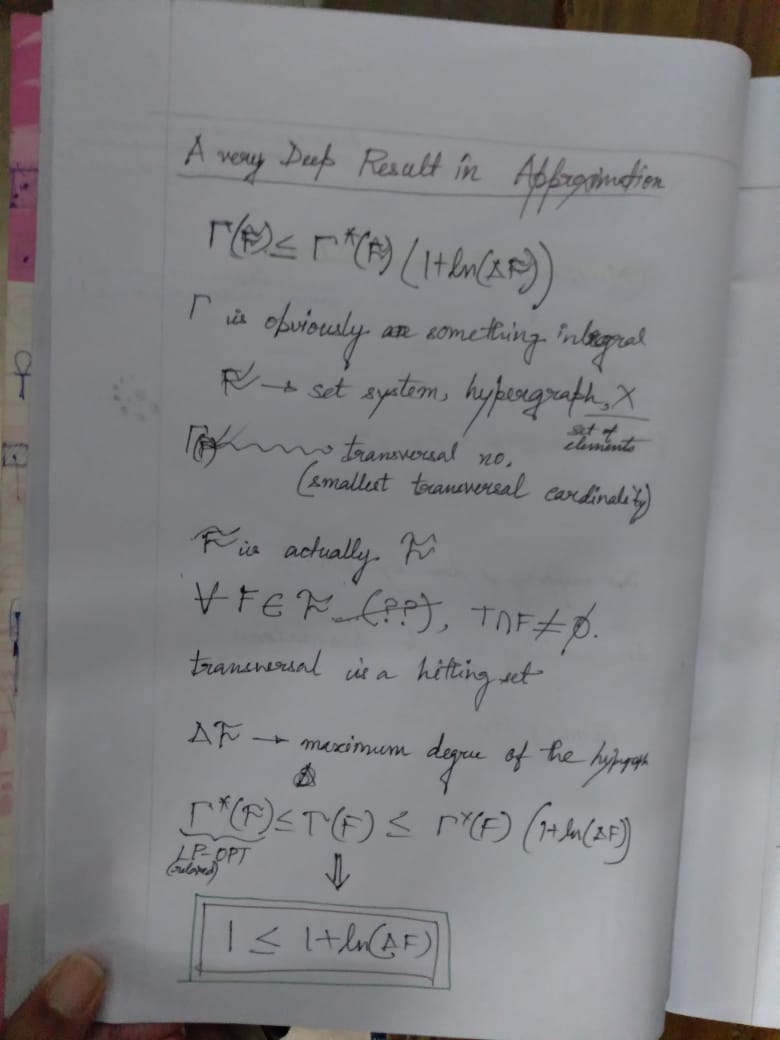 A very Deep Result in Approximation
Γ(F) ≤ Γ*(F) (1+ln(ΔF))
Γ is obviously something integral
F → set system, hypergraph, X
set of elements
Γ(F) transversal no.
(smallest transversal cardinality)
F is actually F
∀ F ∈ F (??), T∩F ≠ ∅.
transversal is a hitting set
ΔF → maximum degree of the hypgraph
Γ*(F) ≤ Γ(F) ≤ Γ*(F) (1+ln(ΔF))
LP-OPT
(relaxed)
⇓
1 ≤ 1+ln(ΔF)